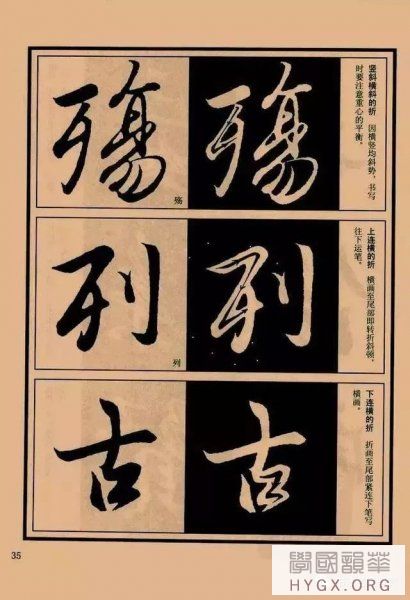 竖斜横斜的折 因横竖均斜势，书写
时要注意重心的平衡。
殇 殇
殇
上连横的折 横画至尾部即转折斜顿，
往下运笔。
列 列
列
下连横的折 折画至尾部紧连下笔写
横画。
古 古
古
35
學國韻華
HYGX.ORG